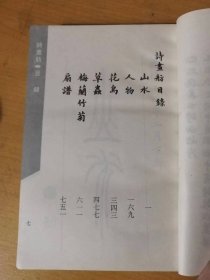 詩畫舫目錄
山水 一
人物 一六九
花鳥 三四三
草蟲 四七七
梅蘭竹菊 六一一
扇譜 七五一
詩畫舫 目錄
七